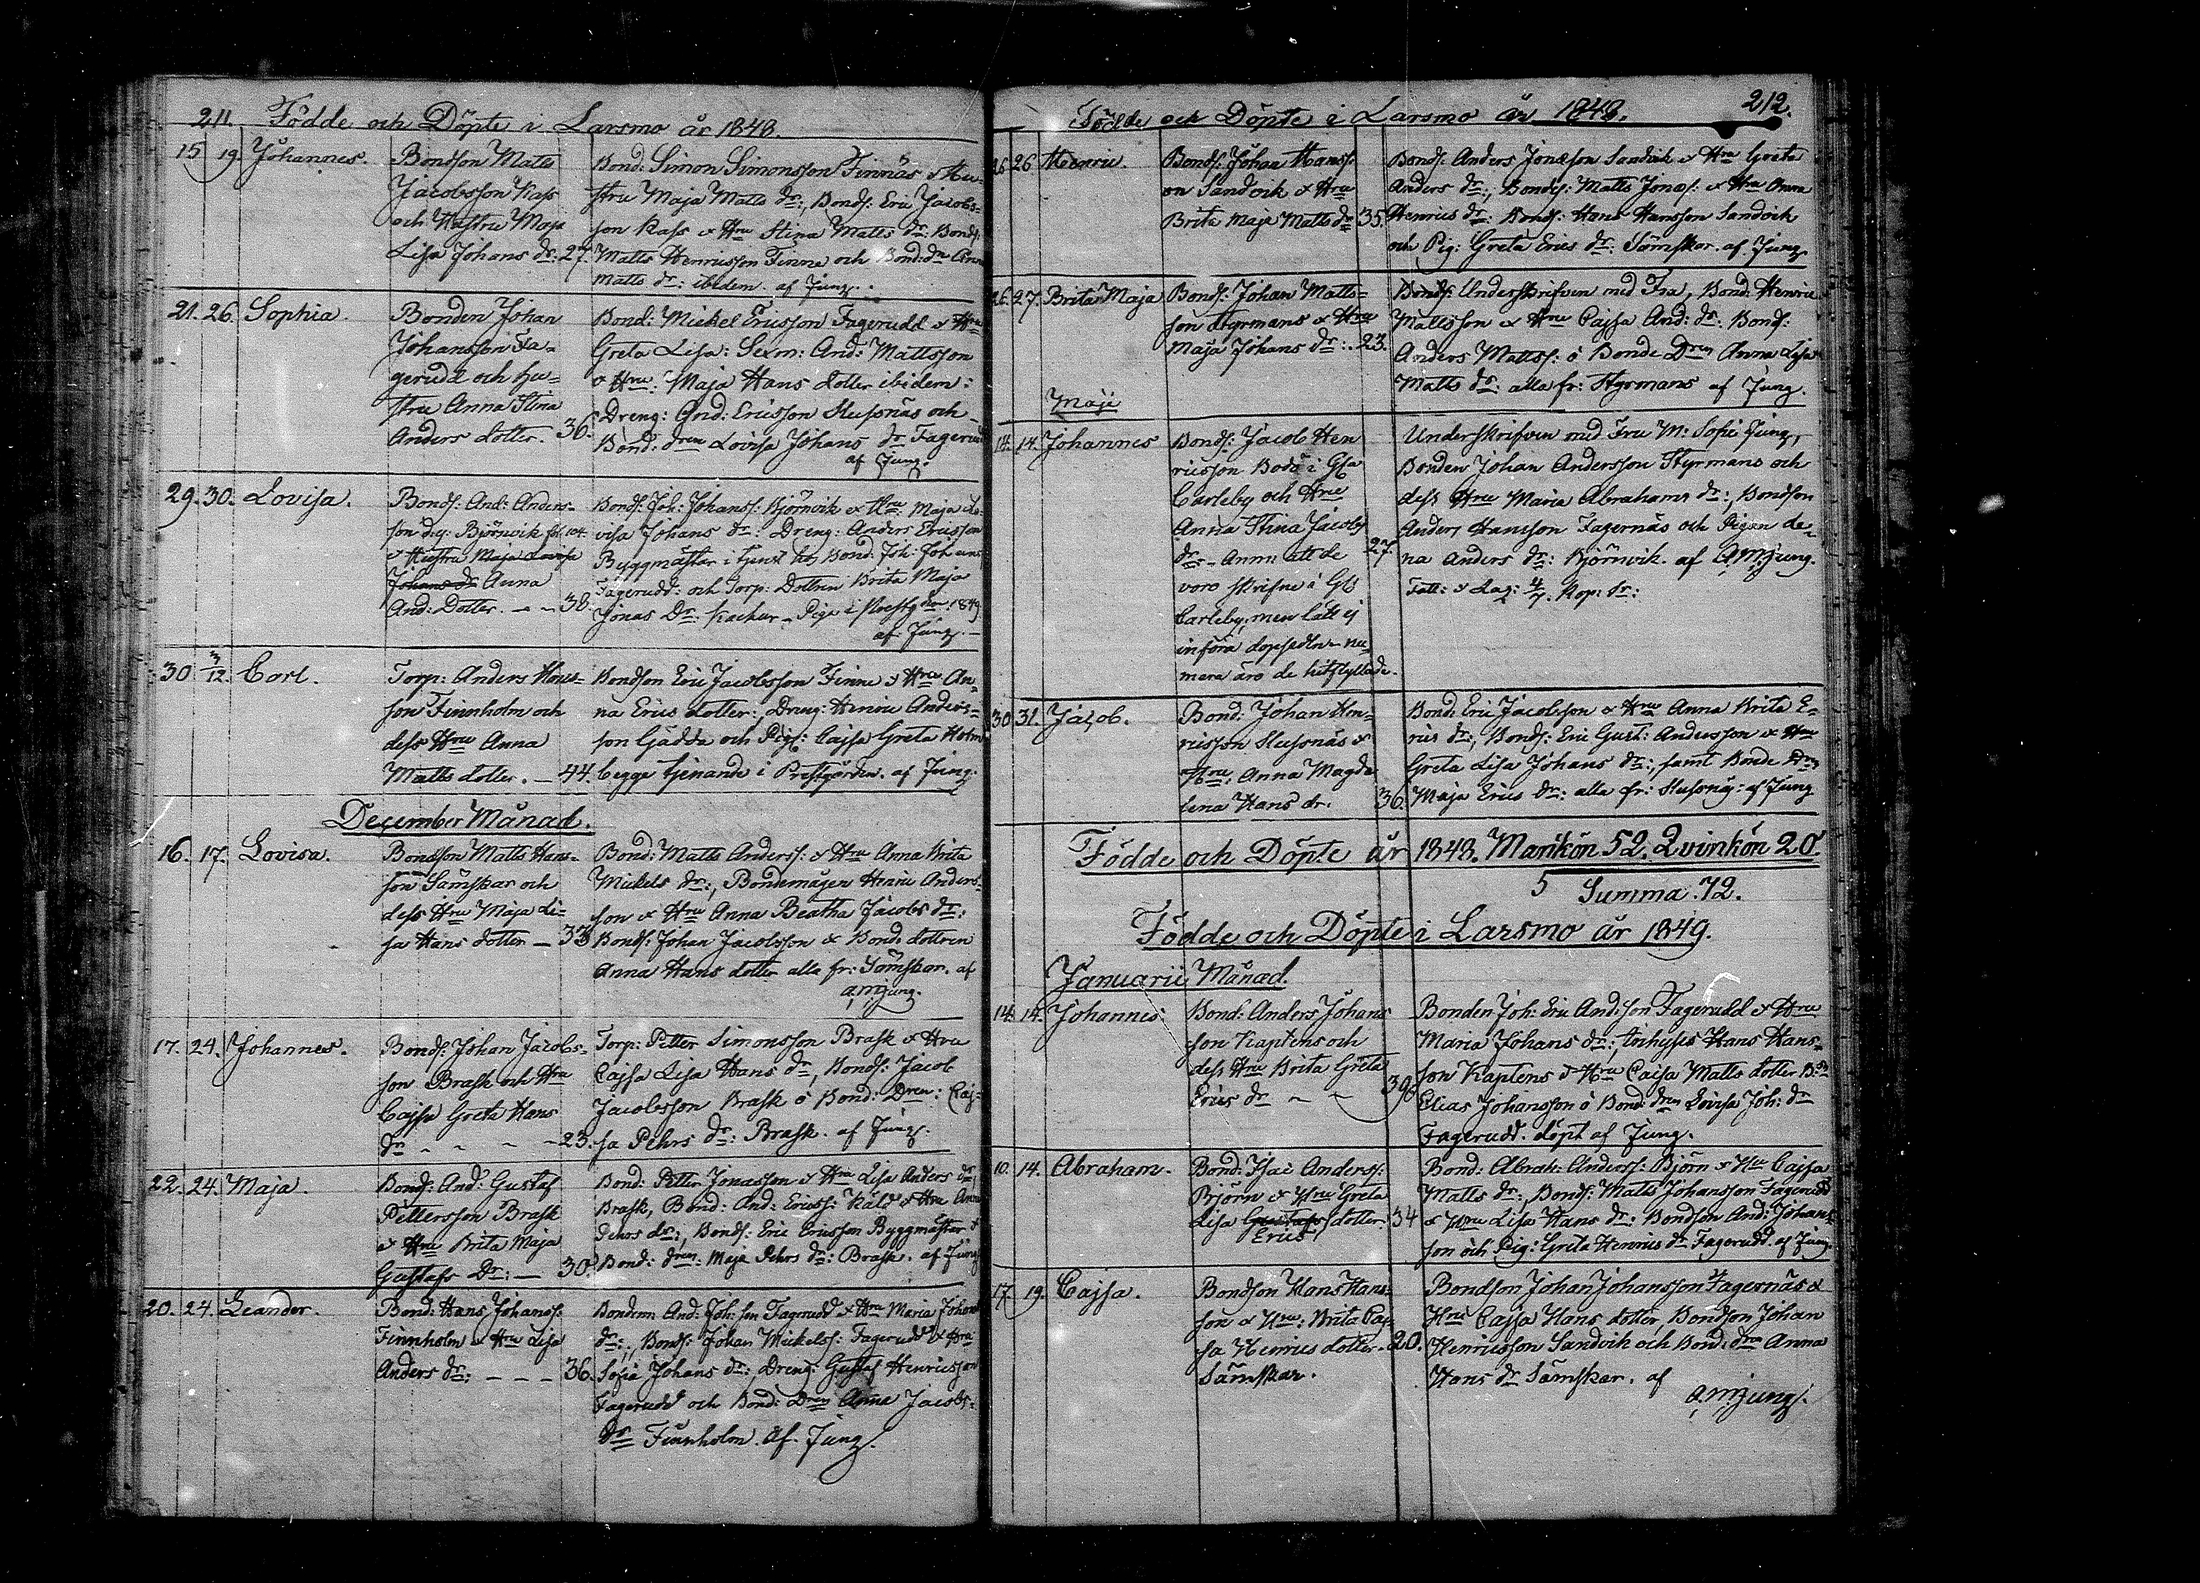 211. Födde och Döpte i Larsmo år 1848.
15 19. Johannes.
Bondson Matts
Jacobsson Kass
och Hustru Maja
Lisa Johans dr: 27.
Bond: Simon Simonsson Finnäs & Hu-
stru Maja Matts dr:, Bonds: Eric Jacobs-
son Kass & Hru Stina Matts dr: Bonds:
Matts Henricsson Finne och Bond: dn Anna
Matts dr: ibidem. af Jung.
21. 26. Sophia.
Bonden Johan
Johansson Fa-
gerudd och hu-
stru Anna Stina
Anders dotter. 36.
Bond: Mickel Ericsson Fagerudd & Hru
Greta Lisa: Sexm: And: Mattsson
& Hru: Maja Hans dotter ibidem:
Dreng: And: Ericsson Slussnäs och
Bond: dren Lovisa Johans dr Fagerudd
af Jung.
29. 30. Lovisa.
Bonds: And: Anders-
son Björnvik fol. 104.
& Hustru Maja Lovisa
Johans dr Anna
And: Dotter. - - 38.
Bonds: Joh: Johanss: Björnvik & Hru Maja Lo-
visa Johans dr: Dreng: Anders Ericsson
Byggmästar i tjenst hos Bond: Joh: Johans:
Fagerudd: och Torp: Dottren Brita Maja
Jonas Dr: Piga i 1849
af Jung. -
30 3/12 Carl.
Torp: Anders Hans-
son Finnholm och
dess Hru Anna
Matts dotter. - 44.
Bondson Eric Jacobsson Finne & Hru An-
na Erics dotter:, Dreng: Henric Anders-
son Gädda och Pig: Cajsa Greta Holm
begge tjenande i Prestgården. af Jung.
December Månad.
16. 17. Lovisa.
Bondson Matts Hans-
son Sämskar och
dess Hru Maja Li-
sa Hans dotter - 33
Bond: Matts Anderss: & Hru Anna Brita
Mickels dr:, Bondemågen Henric Anders-
son & Hru Anna Beatha Jacobs dr:
Bonds: Johan Jacobsson & Bond: dottren
Anna Hans dotter alla fr: Sämskar. af
AMJung.
17. 24. Johannes.
Bonds: Johan Jacobs-
son Brask och Hru
Cajsa Greta Hans
Dr - - - 23.
Torp: Petter Simonsson Brask & Hru
Cajsa Lisa Hans dr, Bonds: Jacob
Jacobsson Brask o Bond: Dren: Caj-
sa Pehrs dr: Brask. af Jung.
22. 24. Maja.
Bonds: And: Gustaf
Pettersson Brask
& Hru Brita Maja
Gustafs Dr: - 30.
Bond: Petter Jonasson & Hru Lisa Anders dr
Brask, Bond: And: Ericss: Käld & Hru Anna
Pehrs dr:, Bonds: Eric Ericsson Byggmästar &
Bond: dren: Maja Pehrs dr: Brask. af Jung
20. 24. Leander.
Bond: Hans Johanss:
Finnholm & Hru Lisa
Anders dr: - - - 36.
Bondmn And: Joh: son Fagerudd & Hru Maria Johans
dr:, Bonds: Johan Mickelss: Fagerudd & Hru
Sofia Johans dr:, Dreng: Gustaf Henricsson
Fagerudd och Bond: Dren Anna Jacobs-
dr Finnholm. Af Jung.
Födde och Döpte i Larsmo år 1848. 212.
26 26 Henric.
Bonds: Johan Hanss-
on Sandvik & Hru
Brita Maja Matts dr 35.
Bonds: Anders Jonasson Sandvik & Hru Greta
Anders dr:, Bonds: Matts Jonass: & Hru Anna
Henrics dr: Bonds: Hans Hansson Sandvik
och Pig: Greta Erics dr: Sämskar. af Jung
26. 27. Brita Maja
Bonds: Johan Matts-
son Styrmans & Hru
Maja Johans dr: 23.
Bonds: Underskrifven med Fru, Bond: Henric
Mattsson & Hru Cajsa And: dr: Bonds:
Anders Mattss: o Bonde Dren Anna Lisa
Matts dr: alla fr: Styrmans af Jung.
Maji
14. 14. Johannes
Bonds: Jacob Hen
ricsson Bodö i Gla
Carleby och Hru
Anna Stina Jacobs
dr - Anm: att de
voro skrifne i Gla
Carleby, men lätt ej
införa dopsedln - nu-
mera äro de hitflyttade.
27.
Underskrifven med Fru M: Sofie Jung,
Bonden Johan Andersson Styrmans och
dess Hru Maria Abrahams dr:, Bondson
Anders Hansson Fagernäs och Pigan Le-
na Anders dr: Björnvik. af AMJung.
30. 31. Jacob.
Bond: Johan Hen-
ricsson Slussnäs &
Hru: Anna Magda
lena Hans dr. 36.
Bond: Eric Jacobsson & Hru Anna Brita E-
rics dr:, Bonds: Eric Gust: Andersson & Hru
Greta Lisa Johans dr:, samt Bonde Dren
Maja Erics dr: alla fr: Slussnäs: af Jung
Födde och Döpte år 1848. Mankön 52. Qvinkön 20.
5 Summa: 72.
Födde och Döpte i Larsmo år 1849.
Januarii Månad.
14. 14. Johannes.
Bond: Anders Johans
son Kaptens och
dess Hru Brita Greta
Erics dr - - 39.
Bonden Joh: Eric And: son Fagerudd & Hru
Maria Johans dr:, Hans Hans-
son Kaptens & Hru Cajsa Matts dotter B:sn
Elias Johansson o Bond: dren Lovisa Joh: dr
Fagerudd. döpt af Jung.
10. 14. Abraham.
Bond: Isac Anderss:
Björn & Hru Greta
Lisa Gustafs dotter. 34
Erics
Bond: Abrah: Anderss: Björn & Hru Cajsa
Matts dr:, Bonds: Matts Johansson Fagerudd
& Hru Lisa Hans dr: Bondson And: Johans-
son och Pig: Greta Henrics dr Fagerudd. af Jung.
17 19. Cajsa.
Bondson Hans Hans-
son & Hru: Brita Caj-
sa Henrics dotter. 20.
Sämskar.
Bondson Johan Johansson Fagernäs &
Hru Cajsa Hans dotter, Bondson Johan
Henricsson Sandvik och Bond: dren Anna
Hans dr Sämskar. af
AMJung.